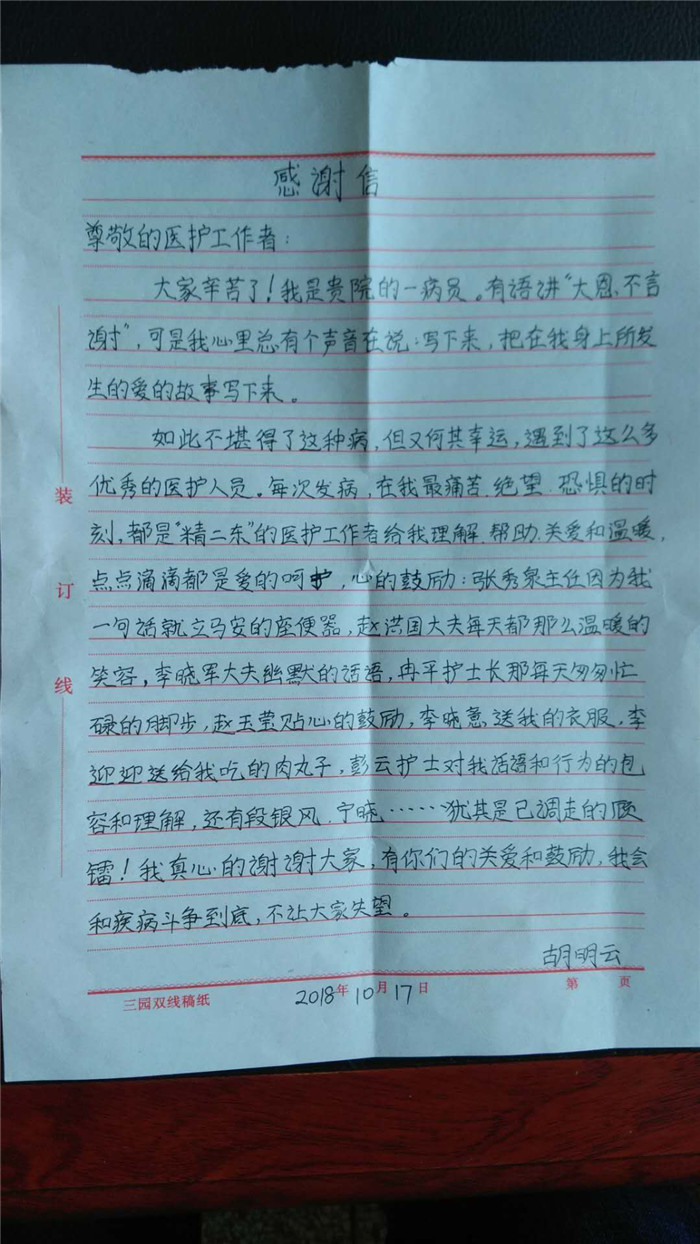 感谢信
尊敬的医护工作者：
大家辛苦了！我是贵院的一病员。有语讲“大恩不言
谢”，可是我心里总有个声音在说：写下来，把在我身上所发
生的爱的故事写下来。
如此不堪得了这种病，但又何其幸运，遇到了这么多
优秀的医护人员。每次发病，在我最痛苦、绝望、恐惧的时
刻，都是“精二东”的医护工作者给我理解、帮助、关爱和温暖，
点点滴滴都是爱的呵护，心的鼓励：张秀泉主任因为我
一句话就立马安的座便器，赵洪国大夫每天都那么温暖的
笑容，李晓军大夫幽默的话语，冉平护士长那每天匆匆忙
碌的脚步，赵玉莹贴心的鼓励，李晓送我的衣服，李
迎迎送给我吃的肉丸子，彭云护士对我话语和行为的包
容和理解，还有段银风、宁晓……犹其是已调走的
镭！我真心的谢谢大家，有你们的关爱和鼓励，我会
和疾病斗争到底，不让大家失望。
胡明云
2018年10月17日
第 页
三园双线稿纸
装
订
线